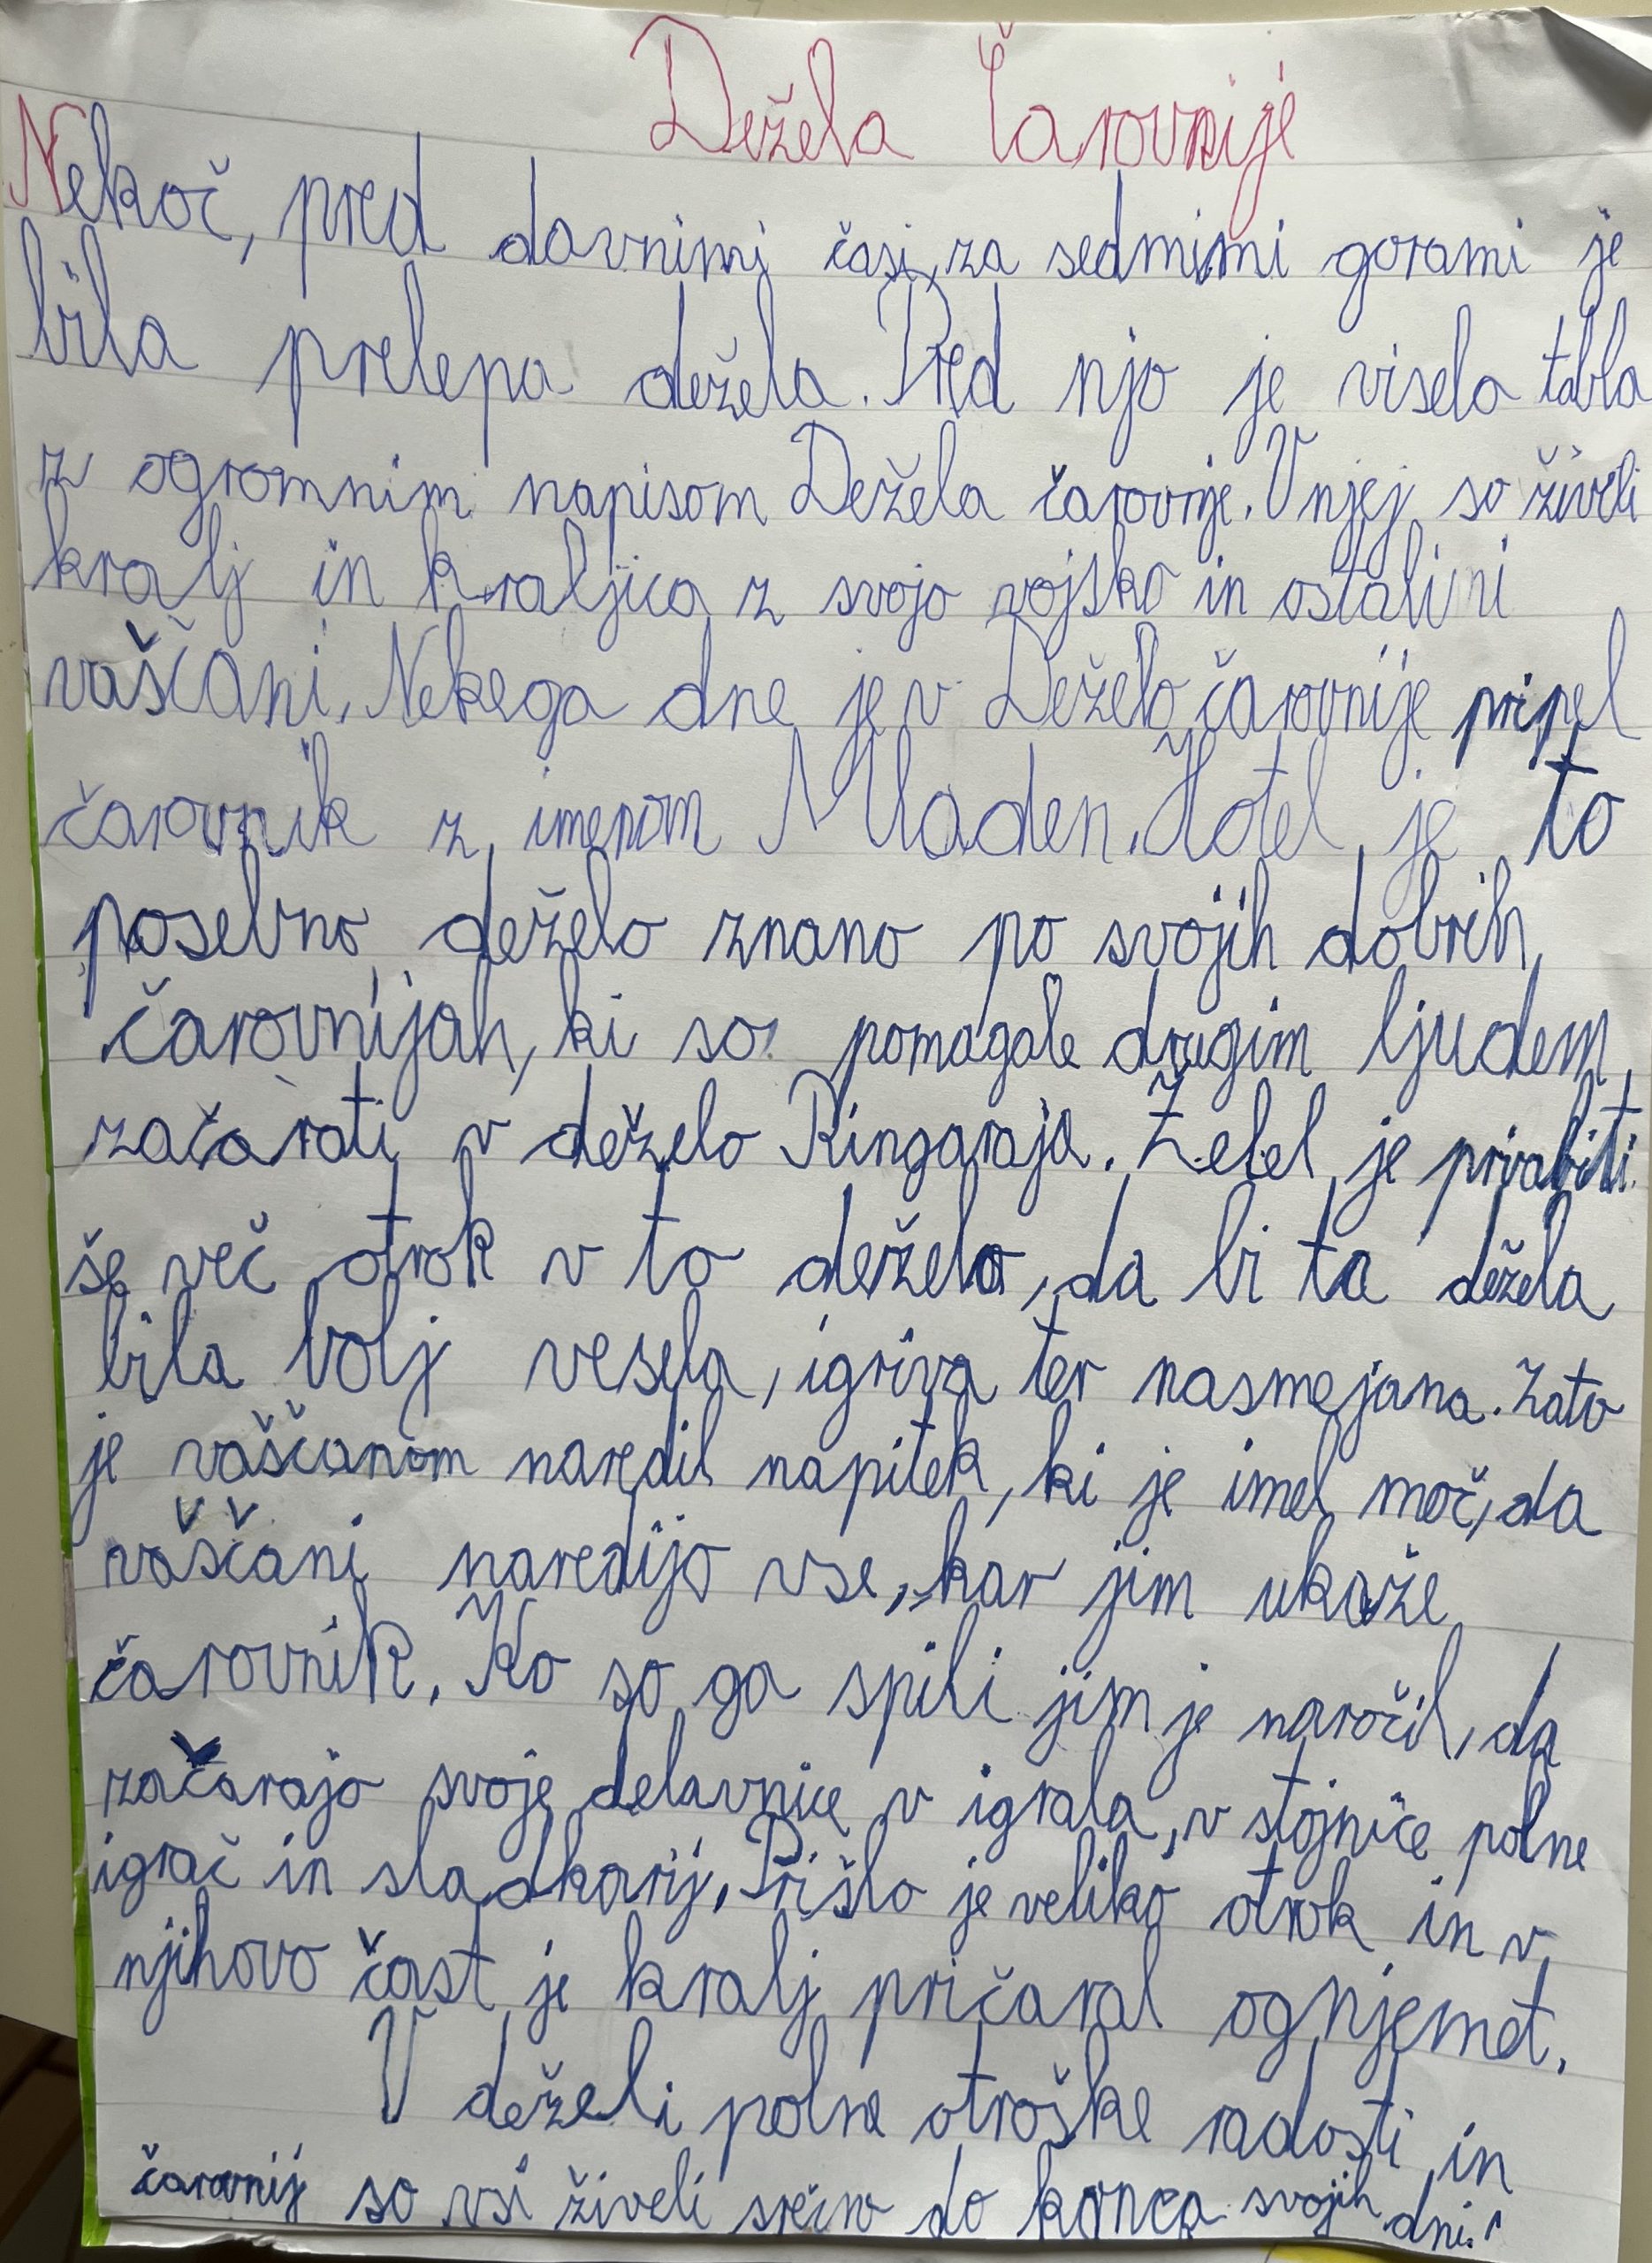 Dežela Čarovnije
Nekoč, pred davnimi časi, za sedmimi gorami je
bila prelepa dežela. Pred njo je visela tabla
z ogromnim napisom Dežela čarovnije. V njej so živeli
kralj in kraljica z svojo vojsko in ostalimi
vaščani. Nekega dne je v Deželo čarovnije pripel
čarovnik z imenom Mladen. Hotel je to
posebno deželo znano po svojih dobrih
čarovnijah, ki so pomagale drugim ljudem
začarati v deželo Ringaraja. Želel je privabiti
še več otrok v to deželo, da bi ta dežela
bila bolj vesela, igriva ter nasmejana. Zato
je vaščanom naredil napitek, ki je imel moč, da
vaščani naredijo vse, kar jim ukaže
čarovnik. Ko so ga spili jim je naročil, da
začarajo svoje delavnice v igrala, v stojnice polne
igrač in sladkarij. Prišlo je veliko otrok in v
njihovo čast je kralj pričaral ognjemet.
V deželi polne otroške radosti in
čarovnij so vsi živeli srečno do konca svojih dni!